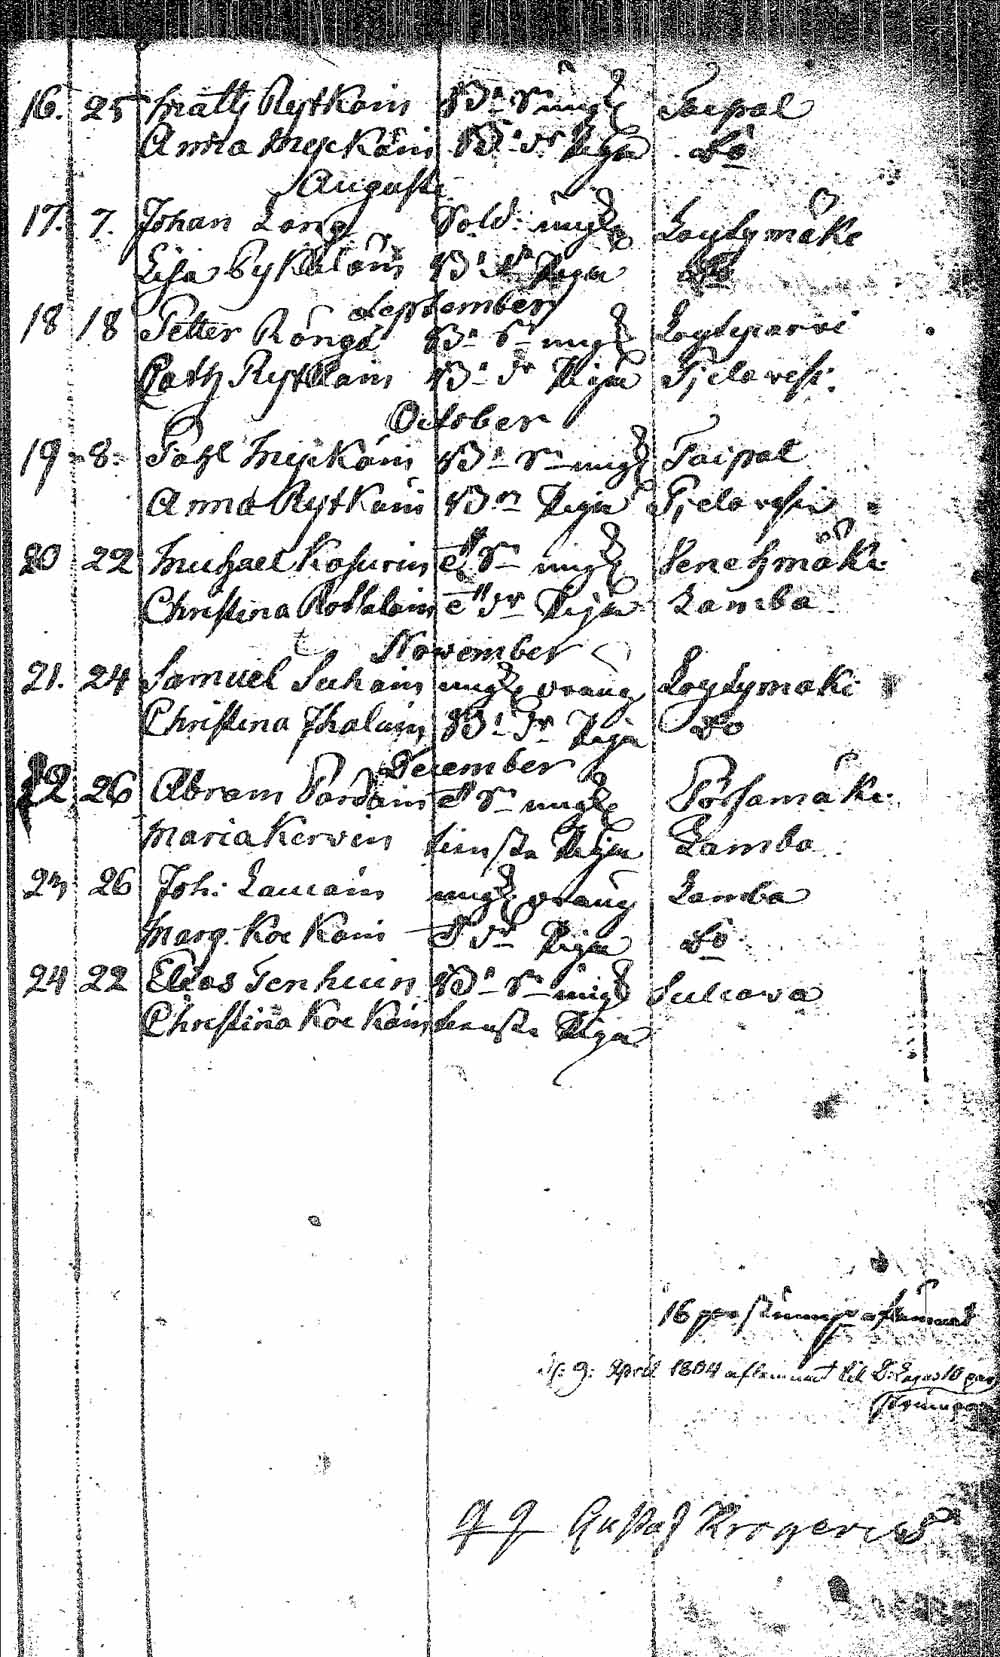 16. 25 Matts Rytkäin B: Sn ungk Taipal
Anna Myckäin B: dr Piga do
Augusti
17. 7. Johan Lång Sold: ungk Löytymäki
Lisa Pykäläin B: dr Piga do
September
18 18 Petter Röngä B: Sn ungk Löytejärvi
Cath Rytkäin B: dr Piga Pjelavesi
October
19 8. Påhl Myckäin B: Sn ungk Taipal
Anna Rytkäin Bn Piga Pjelavesi
20 22 Michael Kosunin Sn ungk Venetzmäki
Christina dr Piga Lamba
November
21. 24 Samuel Suhoin ungk dräng Löytymäki
Christina Jhaluin B: dr Piga do
December
22 26 Abram Pardain Sn ungk Pörsämäki
Maria Kervin tienste Piga Lamba
23 26 Joh: Laucain ungk dräng Lamba
Marg. Kockoin dr Piga do
24 22 Elias Tenhuin B: Sn ungk Suleava
Christina Kockoin tienste Piga
16 par
9: April 1804 aflemnat till 10 par
Gustaf Krogerus